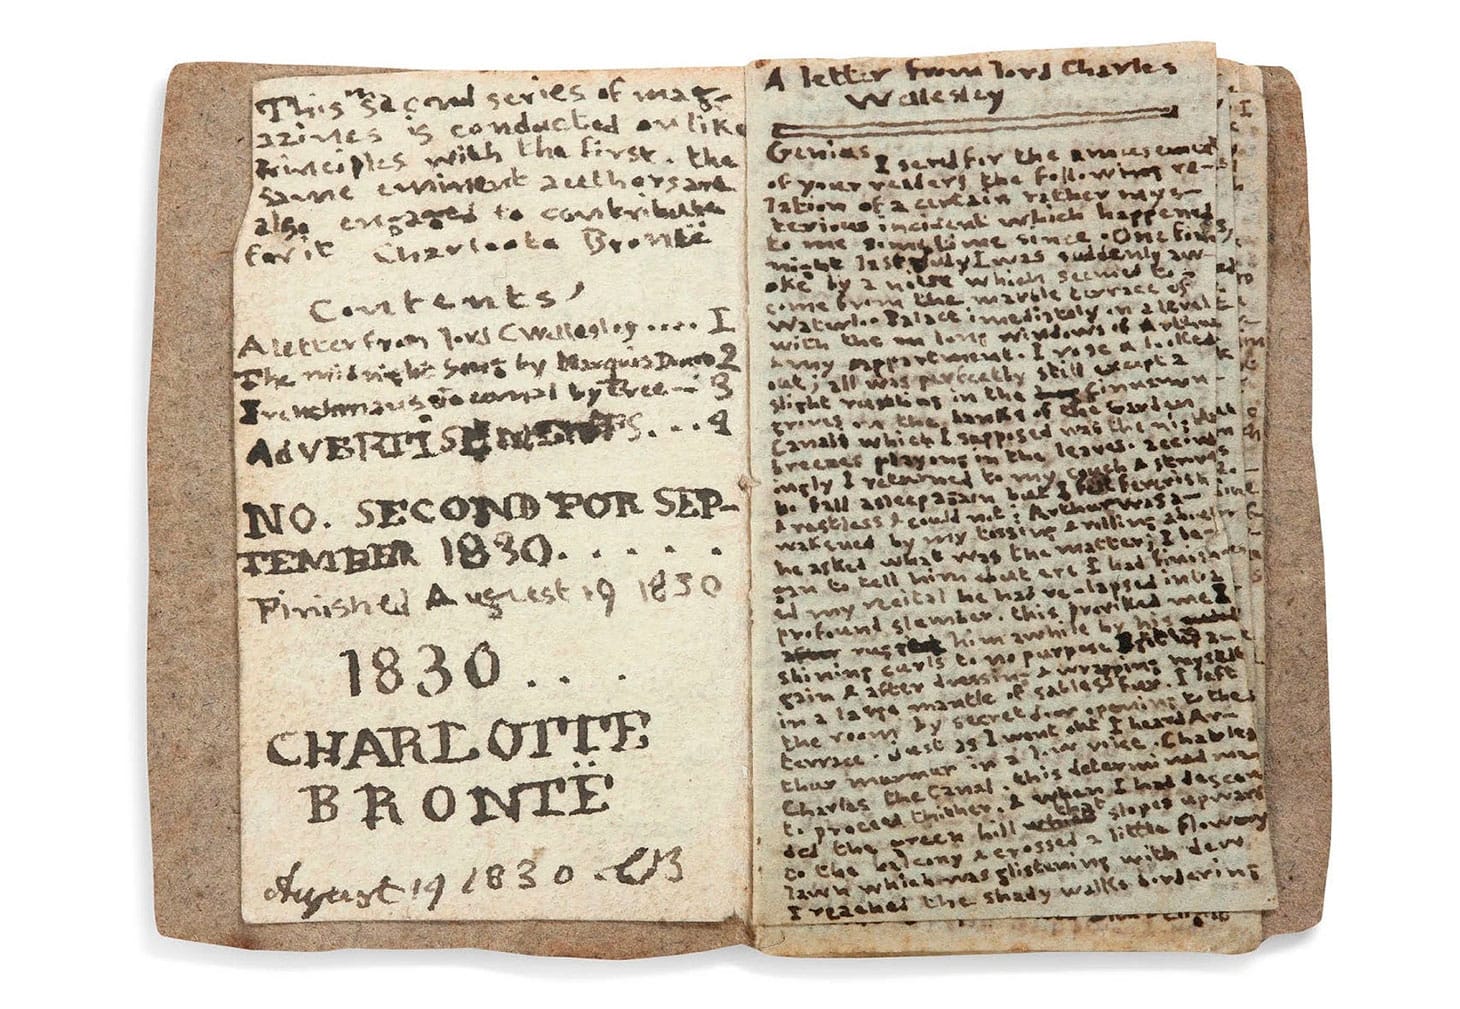 This second series of mag-
azines is conducted on like
Principles with the first. the
same eminent authors are
also engaged to contribute
for it Charlotte Brontë
Contents,
A letter from lord C Wellesley .... 1
The midnight Song by Marquis Douro 2
Frenchmans journal by Tree — 3
AdVERTISEMENTS ... 4
NO. SECOND FOR SEP-
TEMBER 1830. . . . . .
Finished August 19 1830
1830 . . .
CHARLOTTE
BRONTË
August 19 1830 CB
A letter from lord Charles
Wellesley
Genius I send for the amusement
of your readers the following re-
lation of a certain rather mys-
terious incident which happened
to me sometime since. One fine
night last July I was suddenly aw-
oke by a noise which seemed to
come from the marble terrace of
Waterloo Palace imediately on a level
with the long windows of Arthur
& my appartment. I rose & looked
out; all was perfectly still except a
slight rustling in the cinnamon-
groves on the banks of the Garden
Canal which I supposed was the night
breezes playing in the leaves. accordin
ngly I returned to my couch & strove
to fall asleep again but I felt feverish
& restless & could not; Arthur was a-
wakened by my tossing & rolling about
he asked what was the matter; I be-
gan to tell him but ere I had finish
ed my recital he had re-lapsed into a
profound slumber. this provoked me I
rugged him awhile by his
shining curls to no purpose, I got up a-
gain & after dressing & wrapping myself
in a large mantle of sables fur. I left
the room by secret door opening to the
terrace. Just as I went out I heard Ar-
thur murmer in a low voice. Charles
Charles the Canal. this determined me
to proceed thither. & when I had descen
ded the green hill that slopes upward
to the balcony & crossed a little flowery
lawn which was glistening with dew
I reached the shady walks bordering